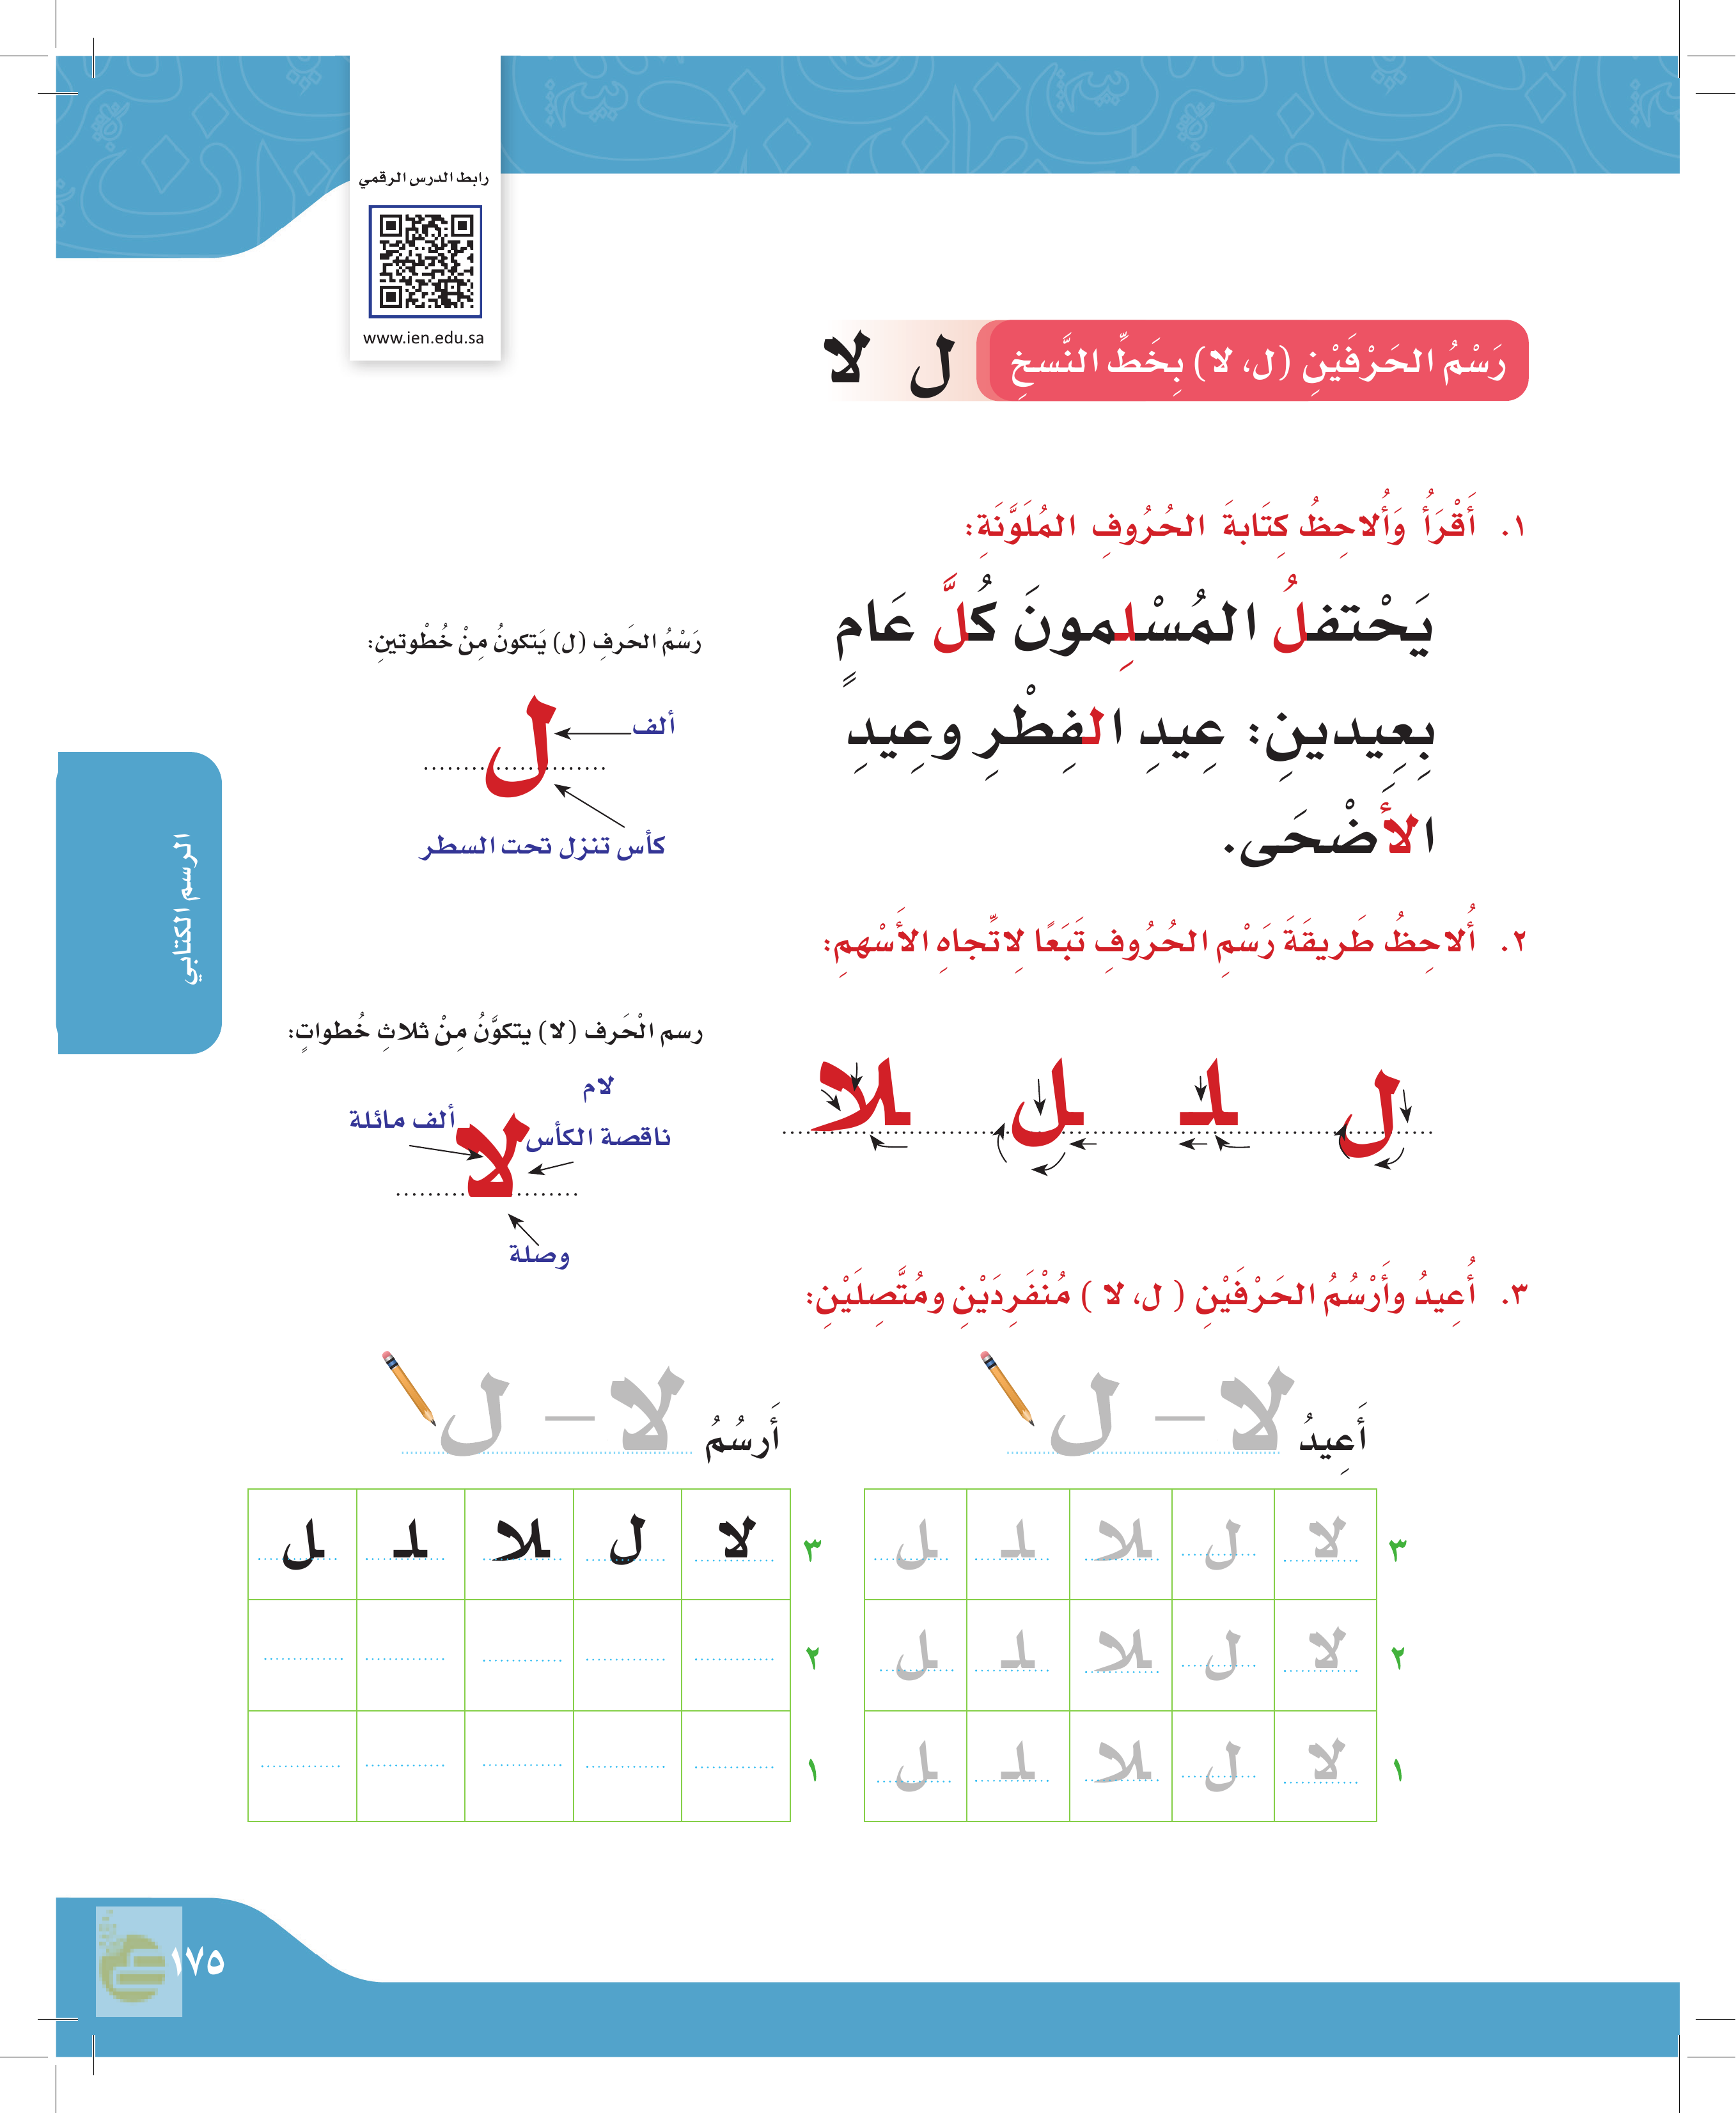 رابط الدرس الرقمي
www.ien.edu.sa
رَسْمُ الحَرْفَيْنِ (ل، لا) بِخَطِّ النَّسخِ
ل لا
١. أَقْرَأُ وَأُلاحِظُ كِتَابةَ الحُرُوفِ المُلَوَّنَةِ:
يَحْتفلُ المُسْلِمونَ كُلَّ عَامٍ
بِعِيدينِ: عِيدِ الفِطْرِ وعِيدِ
الأَضْحَى.
رَسْمُ الحَرفِ (ل) يَتكونُ مِنْ خُطْوتينِ:
ل
ألف
كأس تنزل تحت السطر
٢. أُلاحِظُ طَريقَةَ رَسْمِ الحُرُوفِ تَبَعًا لِاتِّجاهِ الأَسْهمِ:
ل لـ ـل ـلا
رسم الْحَرف (لا) يتكوَّنُ مِنْ ثلاثِ خُطواتٍ:
لام
ناقصة الكأس
ألف مائلة
لا
وصلة
٣. أُعِيدُ وأَرْسُمُ الحَرْفَيْنِ ( ل، لا ) مُنْفَرِدَيْنِ ومُتَّصِلَيْنِ:
أَعِيدُ لا – ل
٣ لا ل ـلا لـ ـل
٢ لا ل ـلا لـ ـل
١ لا ل ـلا لـ ـل
أَرسُمُ لا – ل
٣ لا ل ـلا لـ ـل
٢
١
الرسم الكتابي
١٧٥